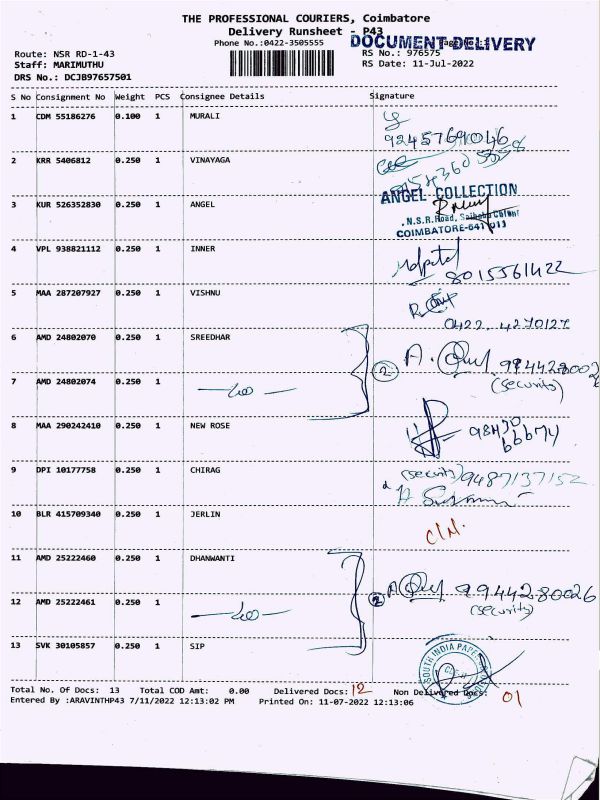 THE PROFESSIONAL COURIERS, Coimbatore
Delivery Runsheet - P43
Phone No.:0422-3505555
DOCUMENT DELIVERY
Route: NSR RD-1-43
RS No.: 976575
Staff: MARIMUTHU
RS Date: 11-Jul-2022
DRS No.: DCJB97657501
S No Consignment No Weight PCS Consignee Details Signature
1 CDM 55186276 0.100 1 MURALI
9245769046
2 KRR 5406812 0.250 1 VINAYAGA
3 KUR 526352830 0.250 1 ANGEL
ANGEL COLLECTION
N.S.R.Road, Saibaba Colony
COIMBATORE-641 011
4 VPL 938821112 0.250 1 INNER
8015561422
5 MAA 287207927 0.250 1 VISHNU
0422-4270127
6 AMD 24802070 0.250 1 SREEDHAR
2
(security)
7 AMD 24802074 0.250 1
8 MAA 290242410 0.250 1 NEW ROSE
98430
66674
9 DPI 10177758 0.250 1 CHIRAG
(security) 9487137152
10 BLR 415709340 0.250 1 JERLIN
11 AMD 25222460 0.250 1 DHANWANTI
2 9944280026
(security)
12 AMD 25222461 0.250 1
13 SVK 30105857 0.250 1 SIP
SOUTH INDIA
Total No. Of Docs: 13 Total COD Amt: 0.00 Delivered Docs: 12 Non Delivered Docs: 01
Entered By :ARAVINTHP43 7/11/2022 12:13:02 PM Printed On: 11-07-2022 12:13:06